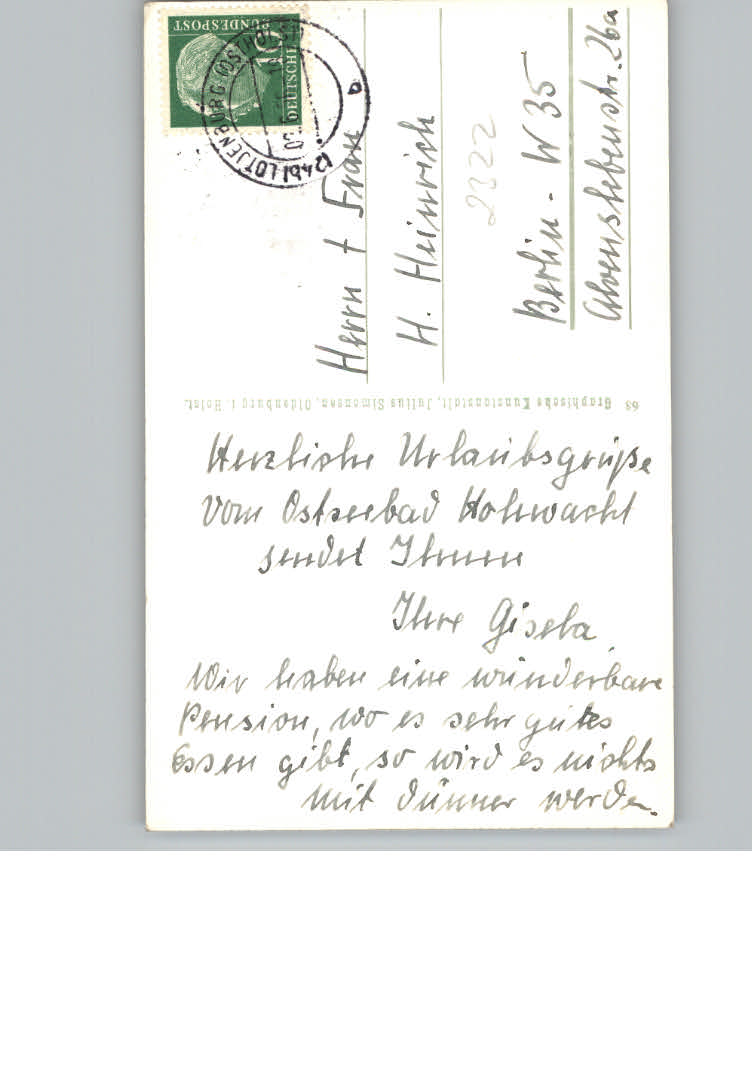 DEUTSCHE
BUNDESPOST
10
(24b) LÜTJENBURG (OSTHOLST)
a
Herrn + Frau
H. Heinrich
2322
Berlin - W 35
Alvenslebenstr. 26a
68 Graphische Kunstanstalt, Julius Simonsen, Oldenburg i. Holst.
Herzliche Urlaubsgrüße
vom Ostseebad Hohwacht
sendet Ihnen
Ihre Gisela.
Wir haben eine wunderbare
Pension, wo es sehr gutes
Essen gibt, so wird es nichts
mit dünner werden.